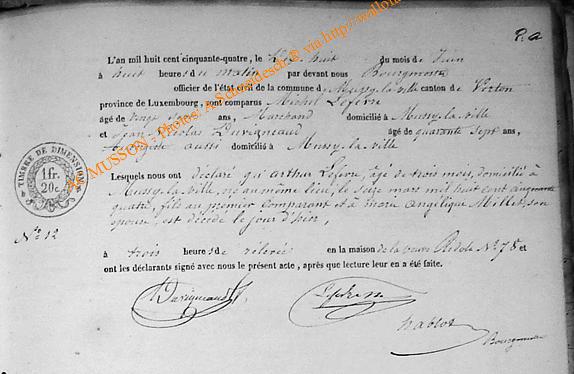 P. a
L'an mil huit cent cinquante-quatre, le huit du mois de Juin
à huit heures du matin par devant nous Bourgmestre
officier de l'état civil de la commune de Mussy-la-ville canton de Virton
province de Luxembourg, sont comparus Michel Lefèvre
âgé de vingt sept ans, Marchand domicilié à Mussy-la-ville
et Jean Nicolas Duvigneaud âgé de quarante sept ans,
aussi domicilié à Mussy-la-ville
Lesquels nous ont déclaré qu'Arthur Lefèvre, âgé de trois mois, domicilié à
Mussy-la-ville, né au même lieu, le seize mars mil huit cent cinquante
quatre, fils au premier comparant et à Marie Angélique Millet, son
épouse, est décédé le jour d'hier,
à trois heures de relevée en la maison de la veuve N° 78 et
ont les déclarants signé avec nous le présent acte, après que lecture leur en a été faite.
N° 12
TIMBRE DE DIMENSION
1 fr.
20 c.
Duvigneaud
Bourgmestre
MUSSON - Photos: A. Schneidesch © via http://wallon